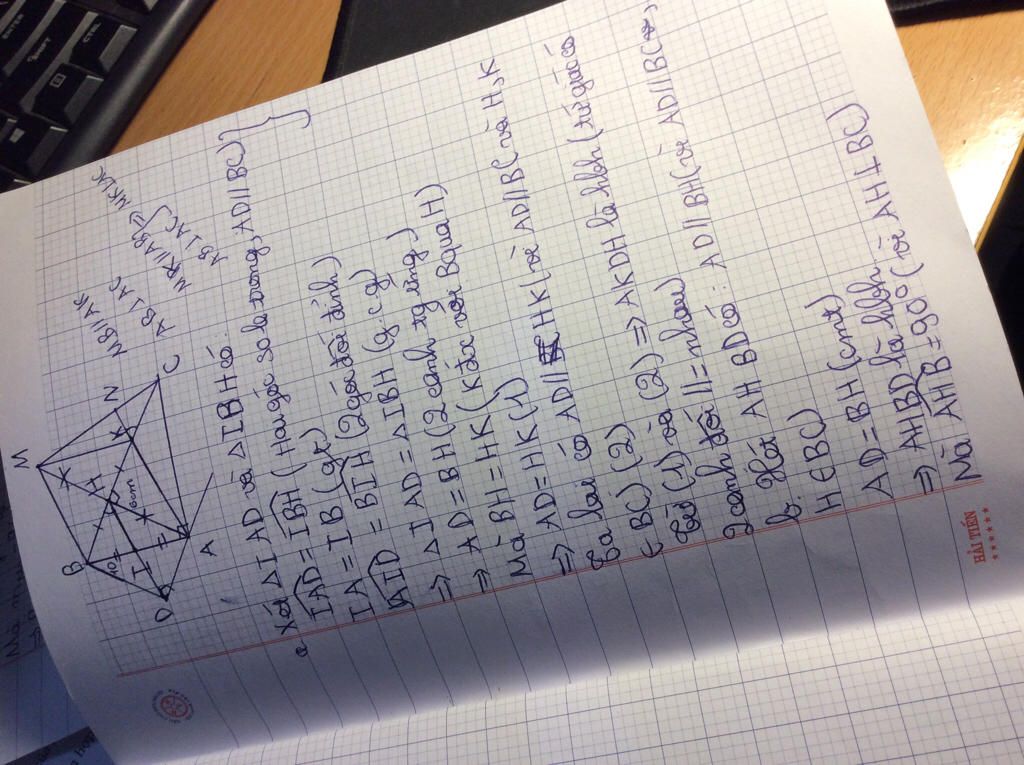 M
B
N
H
C
K
6cm
I
D
A
MB//AK
AB⊥AC
MK//AB
AB⊥AC
⇒ MK⊥AC
a Xét △IAD và △IBH có:
IAD = IBH (Hai góc so le trong, AD//BC)
IA = IB (gt)
AID = BIH (2 góc đối đỉnh)
⇒ △IAD = △IBH (g.c.g)
⇒ AD = BH (2 cạnh tg ứng)
Mà BH = HK (K đx với B qua H)
⇒ AD = HK (1)
Ta lại có AD// HK (vì AD//BC và H, K
∈ BC) (2)
Từ (1) và (2) ⇒ AKDH là hbh (tứ giác có
2 cạnh đối // = nhau)
b. Xét AHBD có: AD//BH (vì AD//BC,
H ∈ BC)
AD = BH (cmt)
⇒ AHBD là hbh
Mà AHB = 90° (vì AH⊥BC)
HẢI TIẾN